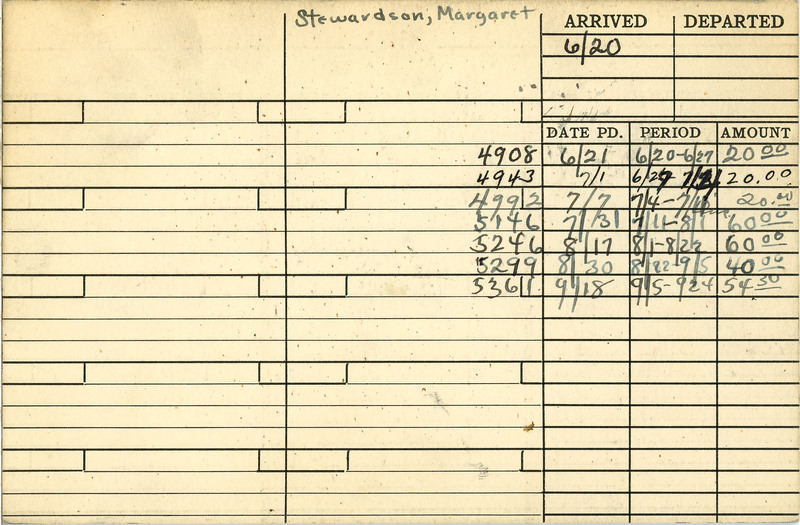 Stewardson, Margaret
ARRIVED DEPARTED
6/20
DATE PD. PERIOD AMOUNT
4908 6/21 6/20-6/27 20 00
4943 7/1 6/27- 20.00
4992 7/7 7/4- 20.00
5146 7/31 7/11-8/1 60 00
5246 8/17 8/1-8/22 60 00
5299 8/30 8/22-9/5 40 00
5361 9/18 9/5-9/24 54 50